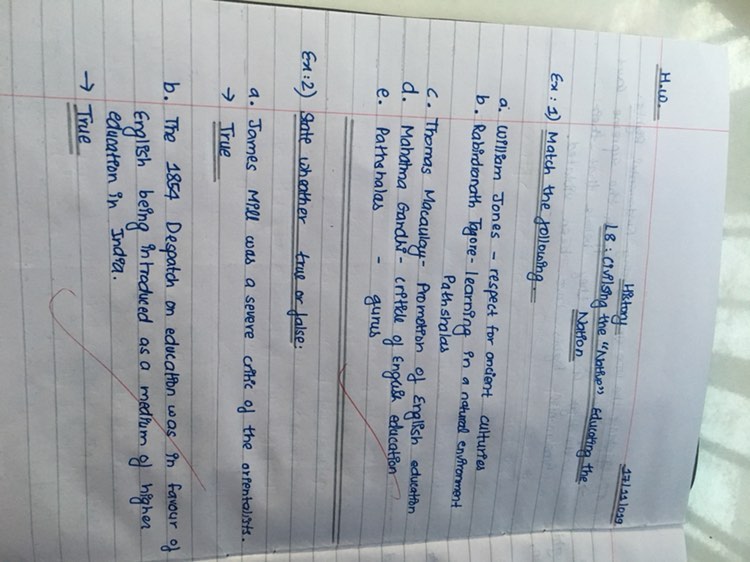 H.W.
17/11/019
History
L8 : Civilsing the "Native" Educating the
Nation
Ex : 1) Match the following
a. William Jones - respect for ancient cultures
b. Rabindranath Tagore - learning in a natural environment
Pathshalas
c. Thomas Macaullay - Promotion of English education
d. Mahatma Gandhi - critile of English education
e. Pathshalas - gurus
Ex : 2) State wheather true or false:
a. James Mill was a severe critic of the orientalists.
→ True
b. The 1854 Despatch on education was in favour of
English being introduced as a medium of higher
education in India.
→ True